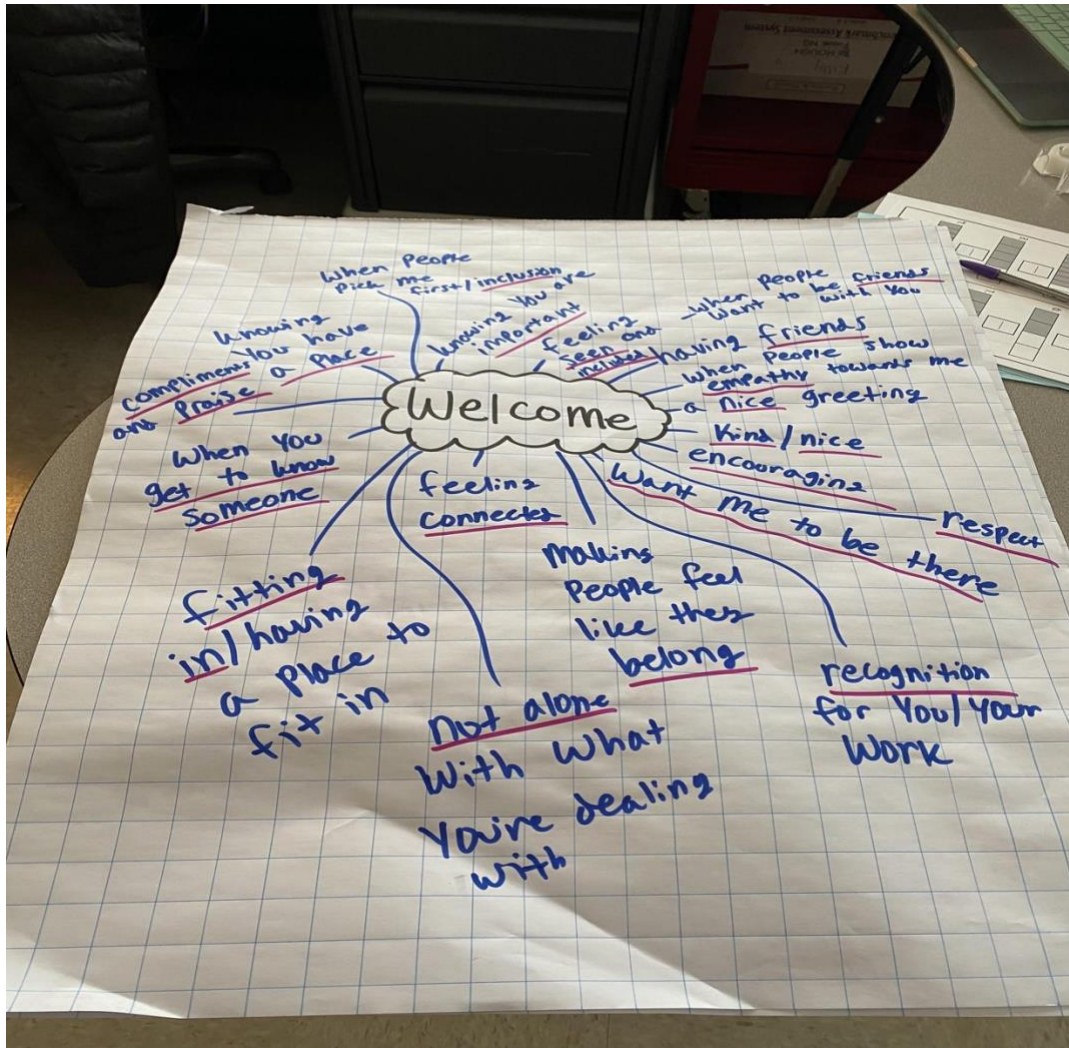 Benchmark Assessment System
Welcome
When People
Pick me
first/inclusion
knowing You are
important
feeling
seen and
included
when People
want to be friends
with You
having friends
when People show
empathy towards me
a nice greeting
Kind/nice
encouraging
respect
Want me to be there
recognition
for You/Your
Work
Making
People feel
like they
belong
feeling
connected
not alone
With What
You're dealing
with
fitting
in/having
a place to
fit in
When You
get to know
someone
compliments
and Praise
knowing
You have
a Place